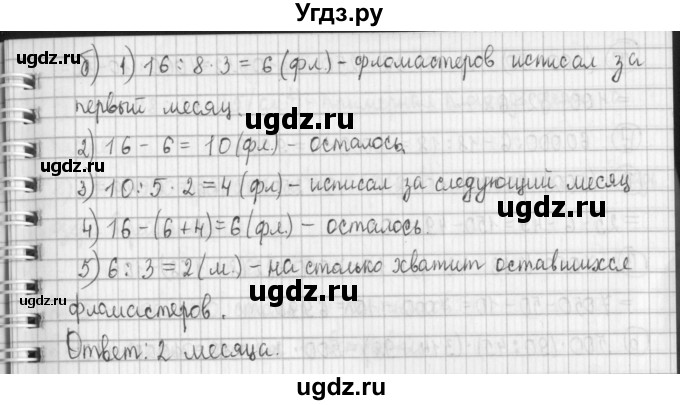 Угдз.ру
б) 1) 16 : 8 · 3 = 6 (фл.) – фломастеров исписал за
первый месяц
2) 16 – 6 = 10 (фл.) – осталось
3) 10 : 5 · 2 = 4 (фл.) – исписал за следующий месяц
4) 16 – (6 + 4) = 6 (фл.) – осталось.
5) 6 : 3 = 2 (м.) – на столько хватит оставшихся
фломастеров.
Ответ: 2 месяца.
ugdz.ru
ugdz.ru
ugdz.ru
ugdz.ru
ugdz.ru
ugdz.ru
ugdz.ru
ugdz.ru
ugdz.ru
ugdz.ru